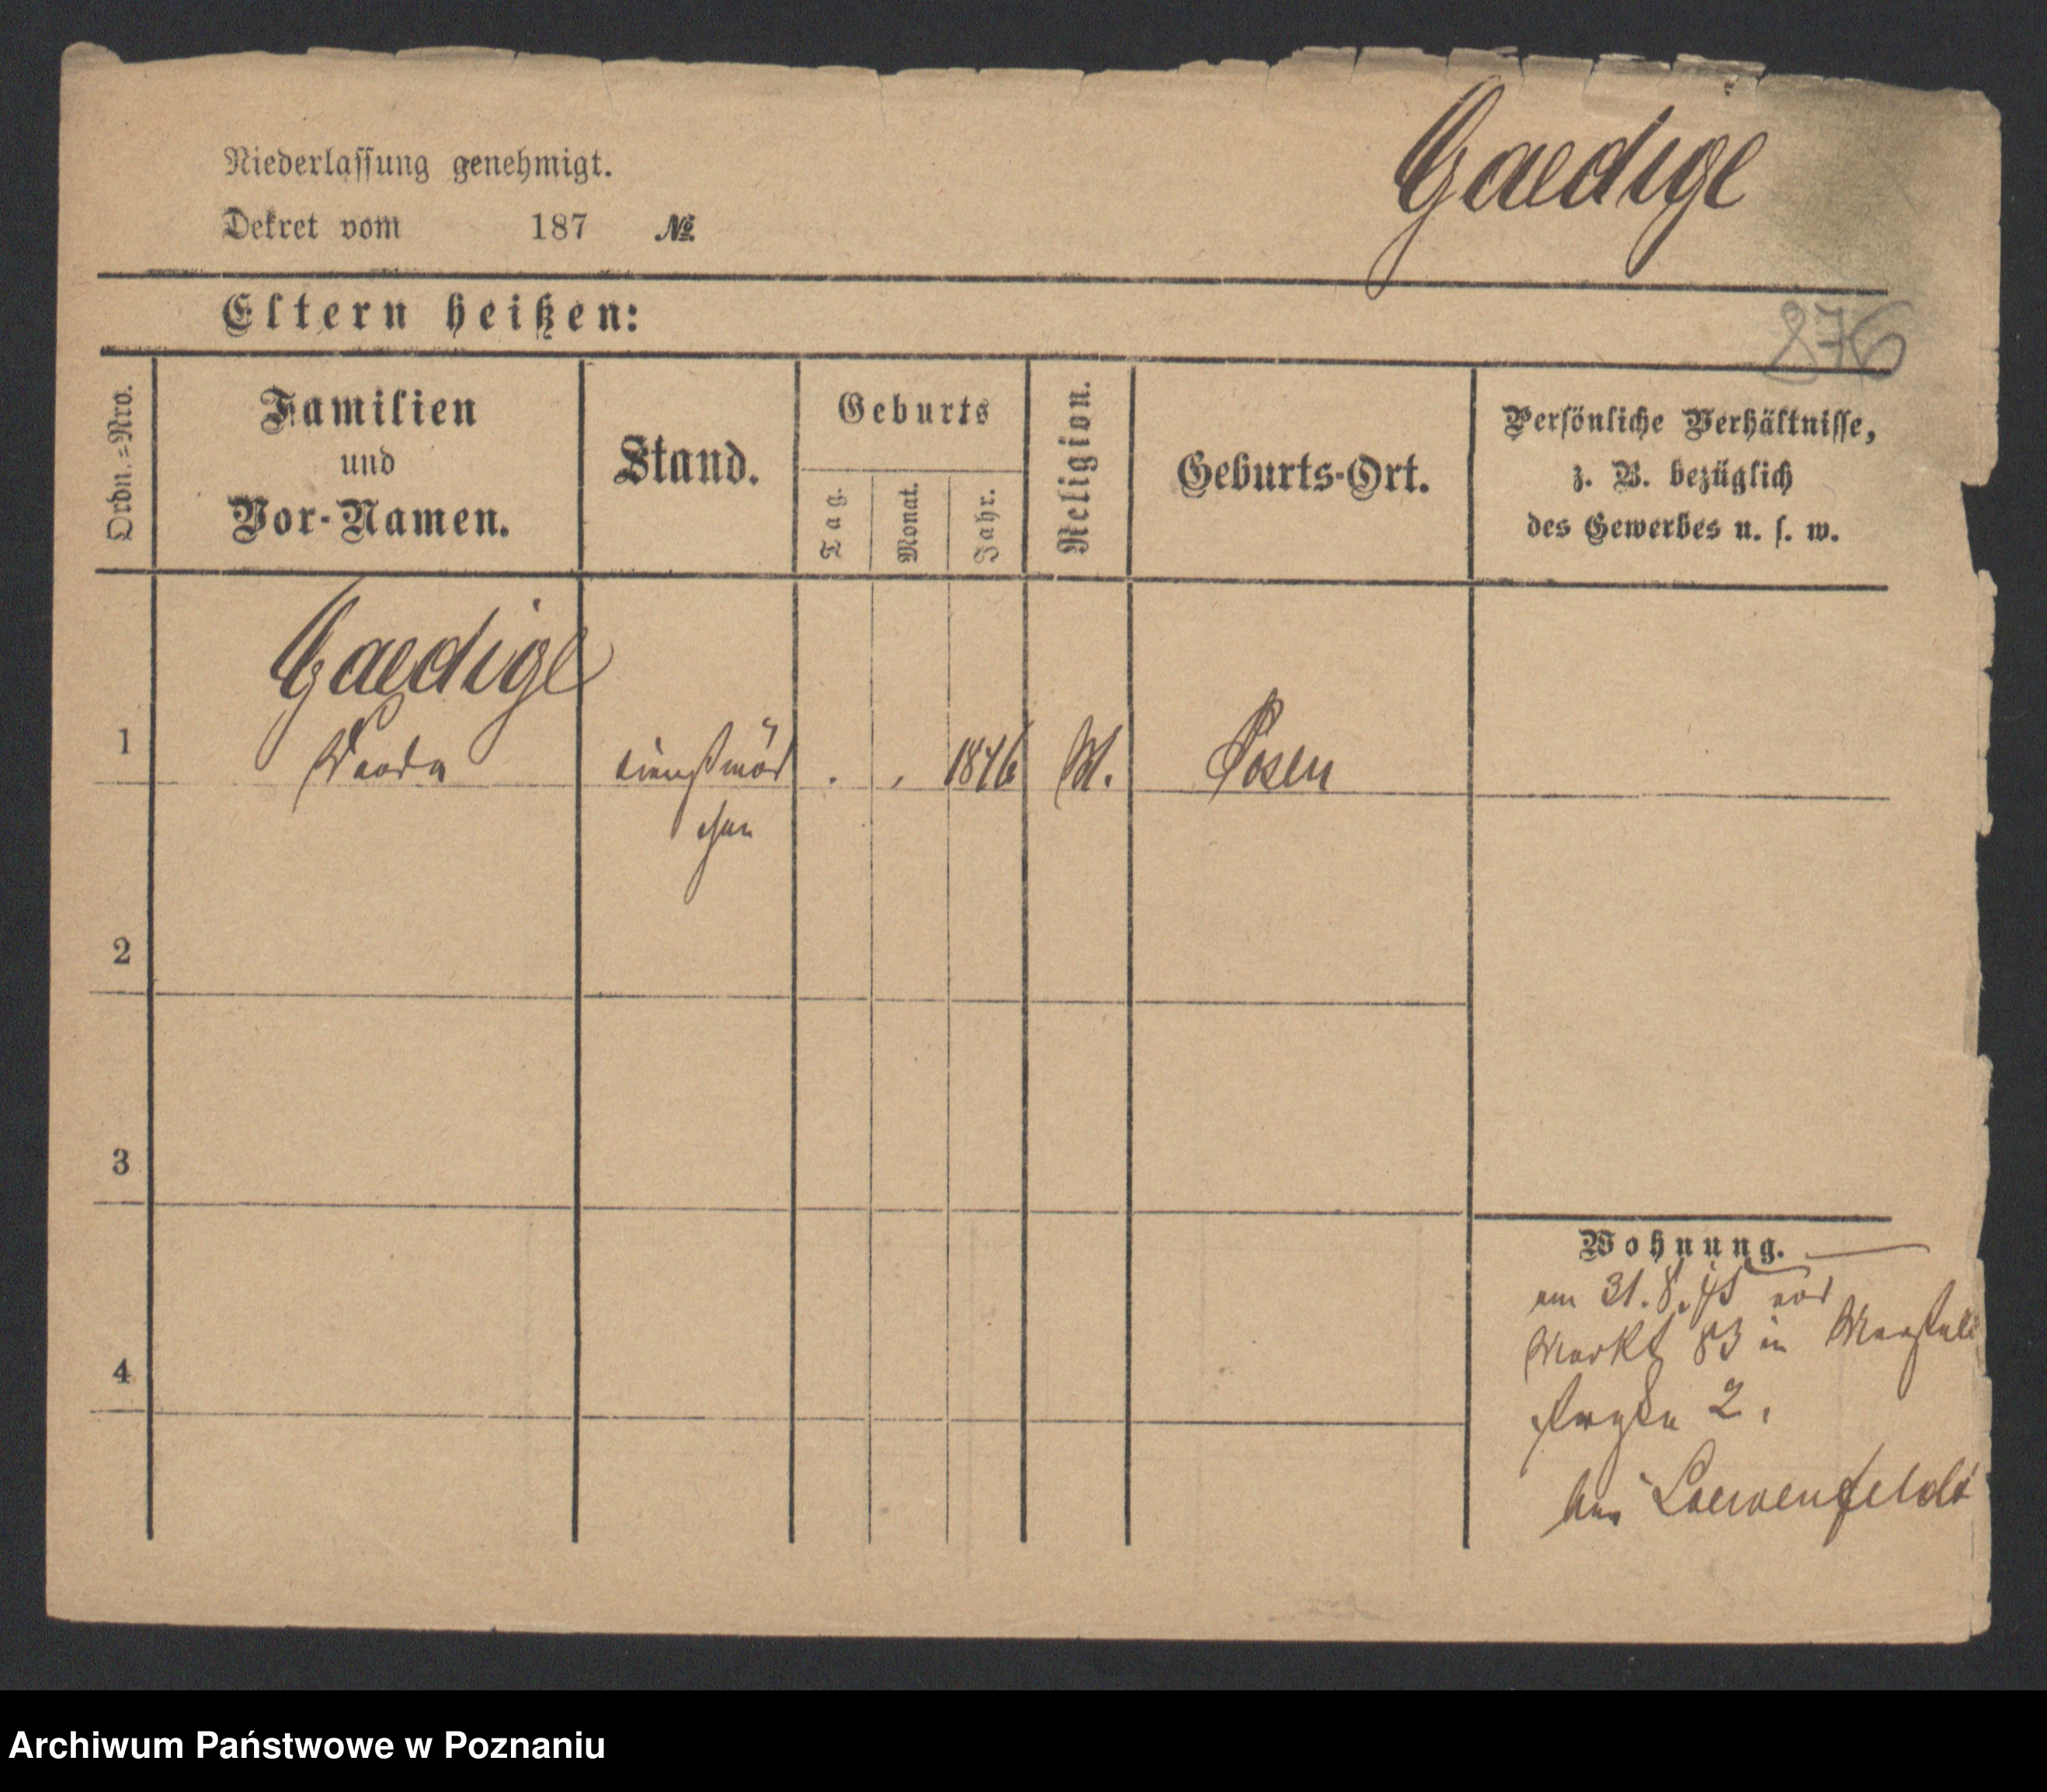 Niederlassung genehmigt.
Dekret vom 187 №
Gaedige
876
Eltern heißen:
Ordn.=Nro.
Familien
und
Vor-Namen.
Stand.
Geburts
Tag.
Monat.
Jahr.
Religion.
Geburts-Ort.
Persönliche Verhältnisse,
z. B. bezüglich
des Gewerbes u. s. w.
Gaedige
1 Wanda dienstmäd 1846 Posen
chen
2
3
4
Wohnung.
am 31.8.
Markt 83 in
2.
bei Loewenfeld
Archiwum Państwowe w Poznaniu